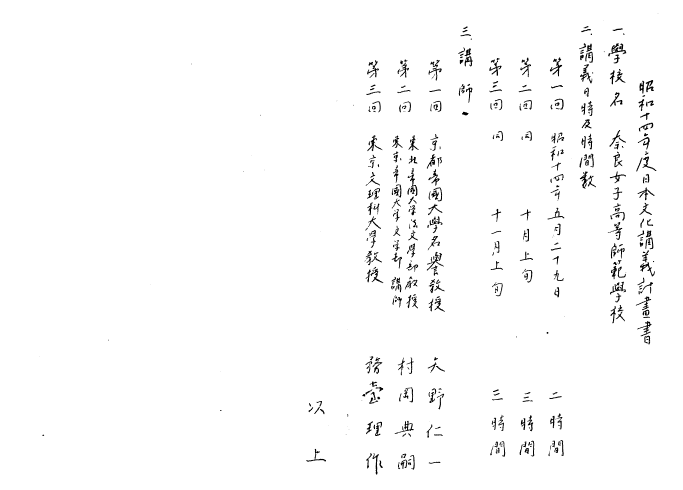 昭和十四年度日本文化講義計畫書
一、學校名 奈良女子高等師範學校
二、講義日時及時間數
第一回 昭和十四年五月二十九日 二時間
第二回 同 十月上旬 三時間
第三回 同 十一月上旬 三時間
三、講師
第一回 京都帝國大學名譽教授 矢野仁一
第二回 東北帝國大學法文學部教授
東京帝國大學文學部講師 村岡典嗣
第三回 東京文理科大學教授 務臺理作
以上